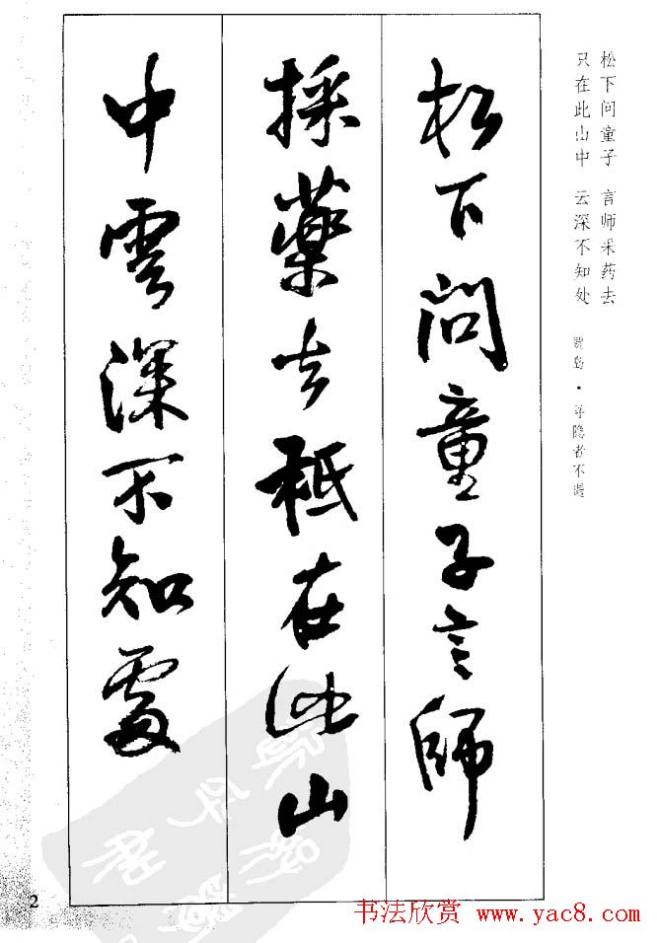 松下問童子言師
採藥去秪在此山
中雲深不知處
松下问童子 言师采药去
只在此山中 云深不知处
贾岛·寻隐者不遇
2
书法欣赏 www.yac8.com